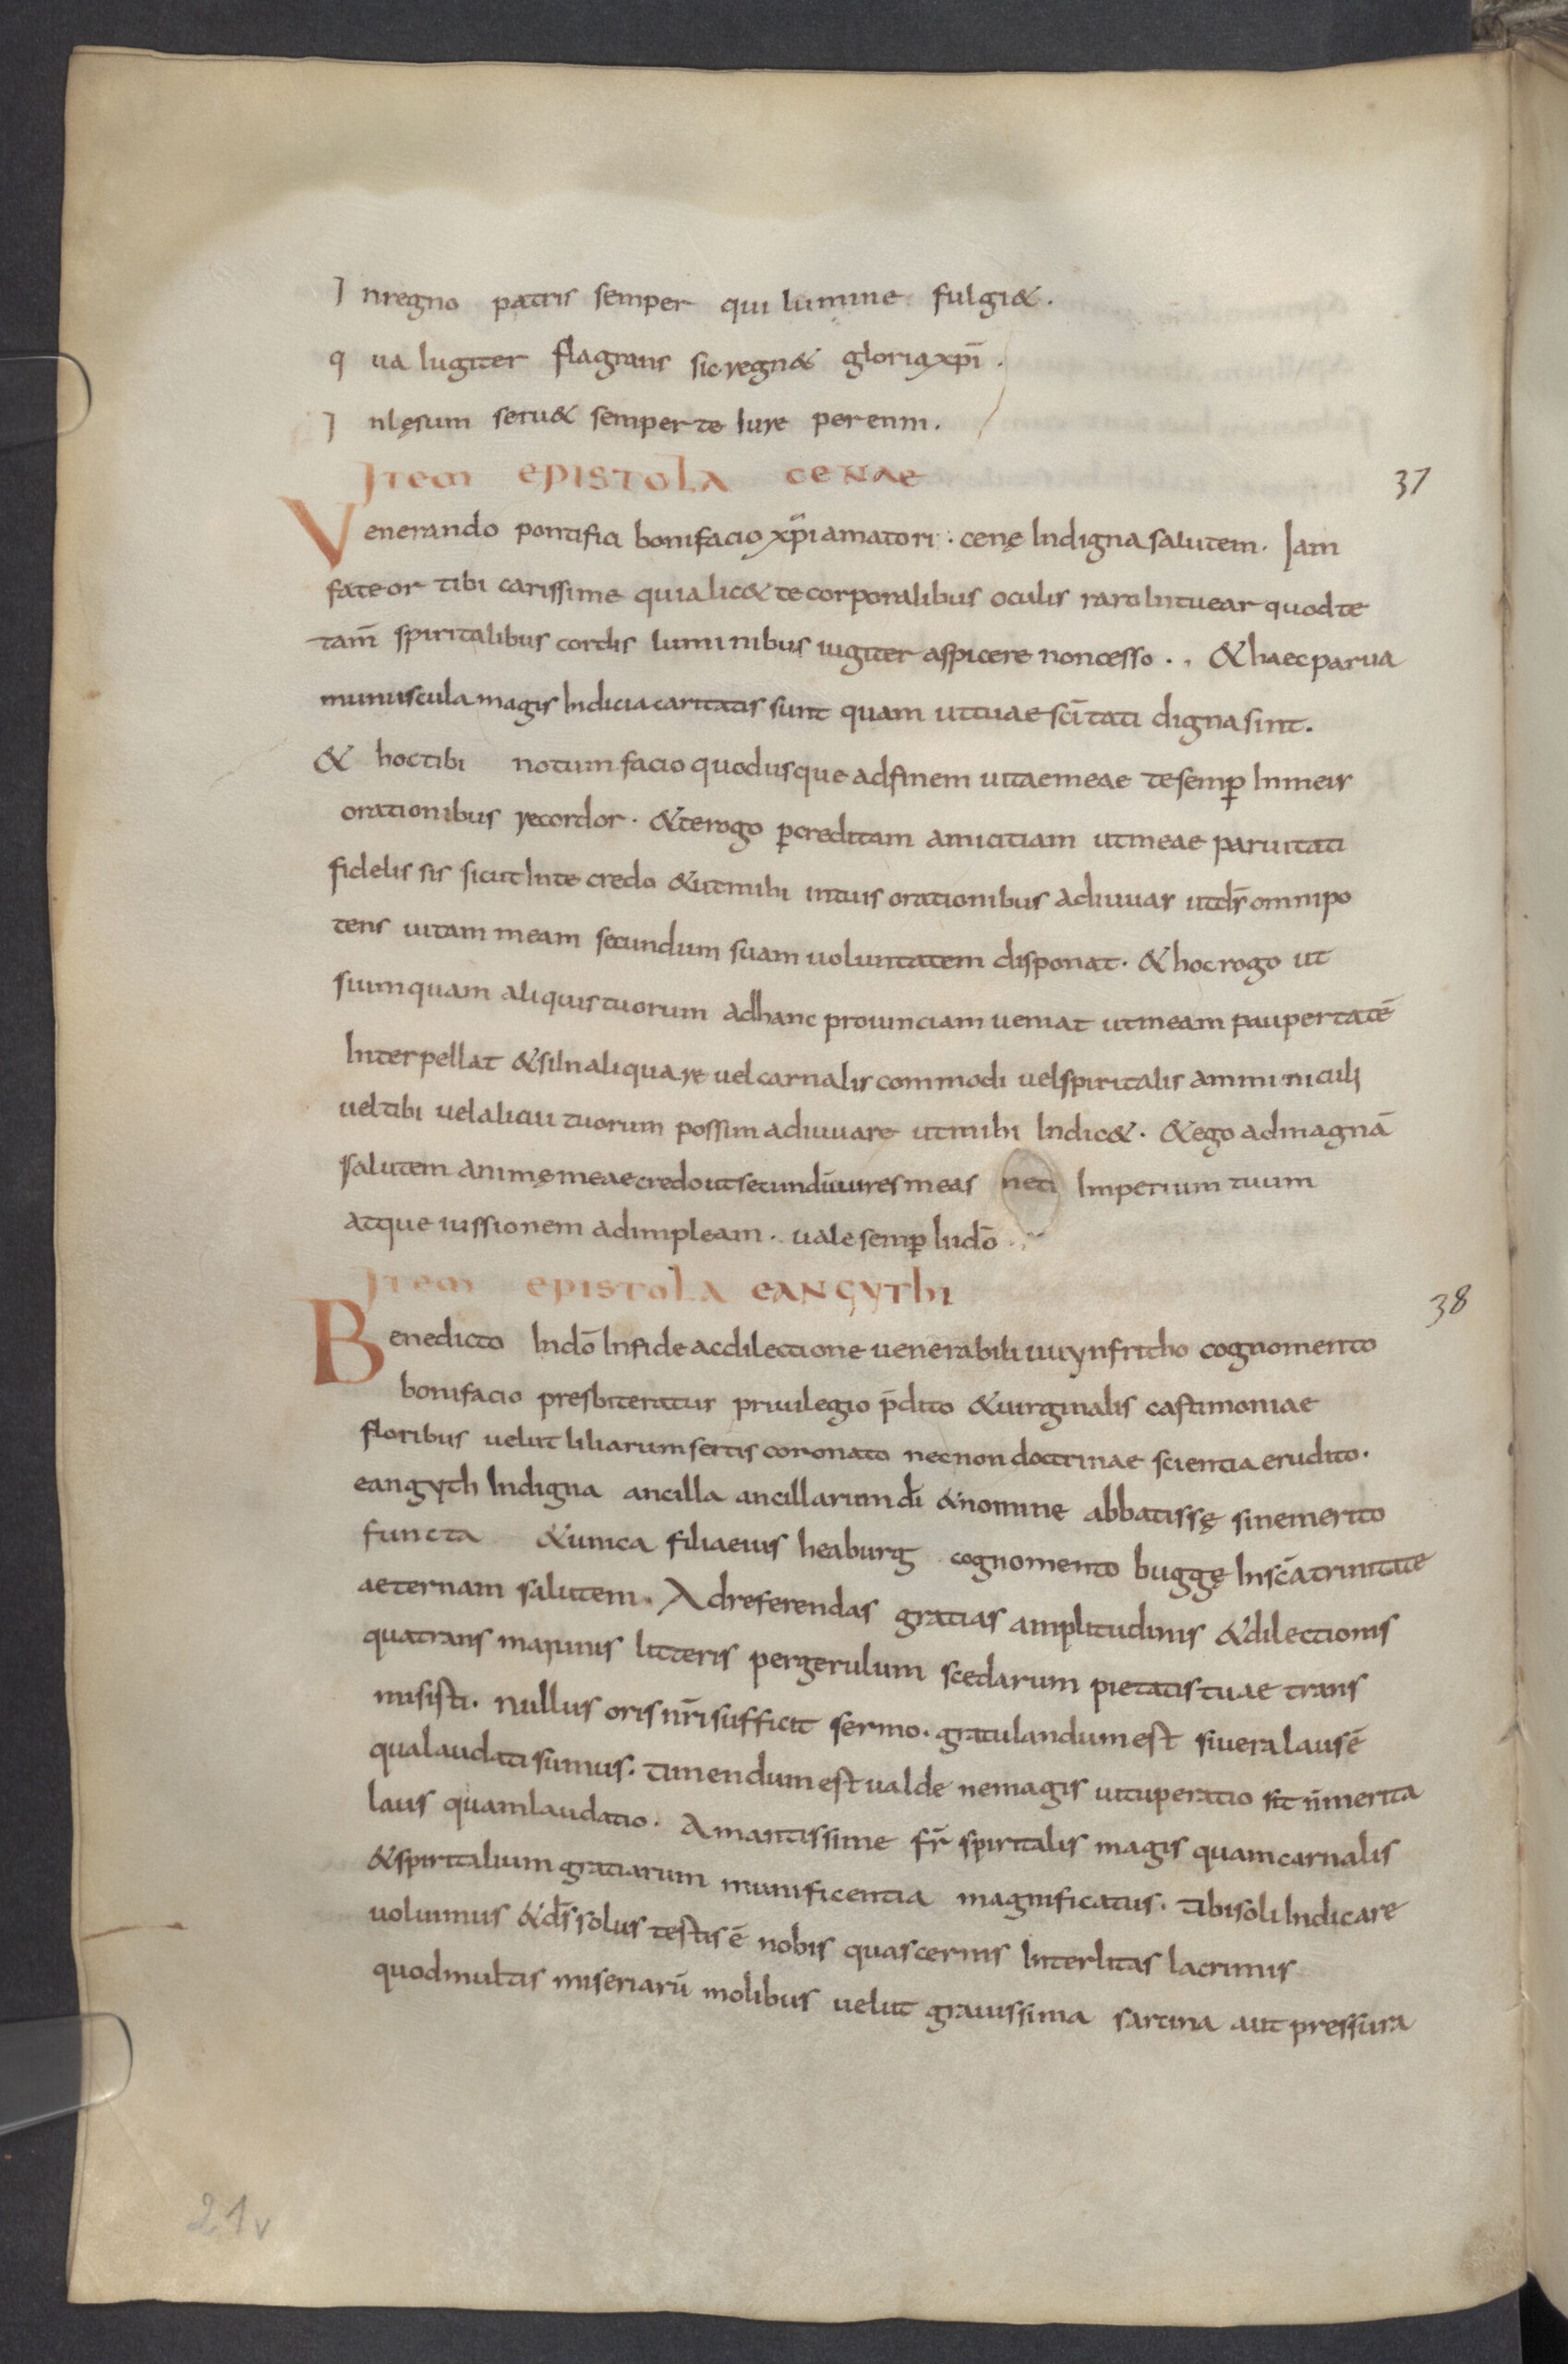 Inregno patris semper qui lumine fulgi&.
qua Iugiter flagrans sic regn& gloria xp̄i.
Inlęsum seru& semper te Iure perenni.
Item epistola cenae
37
Venerando pontifici bonifacio xp̄i amatori. cenę Indigna salutem. Iam
fateor tibi carissime quia lic& te corporalibus oculis raro Intuear quod te
tam̄ spiritalibus cordis luminibus iugiter aspicere non cesso. & haec parua
munuscula magis Indicia caritatis sunt quam ut tuae sc̄itati digna sint.
& hoc tibi notum facio quod usque ad finem uitae meae te semp̄ In meis
orationibus recordor. & te rogo p̄ creditam amicitiam ut meae paruitati
fidelis sis sicut In te credo & ut mihi in tuis orationibus adiuuas ut ds̄ omnipo
tens uitam meam secundum suam uoluntatem disponat. & hoc rogo ut
si umquam aliquis tuorum ad hanc prouinciam ueniat ut meam paupertatē
Interpellat & si In aliqua re uel carnalis commodi uel spiritalis amminiculi
uel tibi uel alicui tuorum possim adiuuare ut mihi Indic&. & ego ad magnā
salutem animę meae credo ut secundū uires meas Imperium tuum
atque iussionem adimpleam. uale semp̄ In dō
Item epistola eangythi
38
Benedicto In dō In fide ac dilectione uenerabili uuynfritho cognomento
bonifacio presbiteratus priuilegio p̄dito & uirginalis castimoniae
floribus uelut liliarum sertis coronato nec non doctrinae scientia erudito.
eangyth Indigna ancilla ancillarum dī & nomine abbatissę sine merito
functa & unica filia eius heaburg cognomento buggę In sc̄a trinitate
aeternam salutem. Ad referendas gratias amplitudinis & dilectionis
qua transmarinis litteris pergerulum scedarum pietatis tuae trans
misisti. Nullus oris nr̄i sufficit sermo. gratulandum est si uera laus ē
qua laudati sumus. timendum est ualde ne magis uituperatio sit inmerita
laus quam laudatio. Amantissime fr̄ spiritalis magis quam carnalis
& spiritalium gratiarum munificentia magnificatus. tibi soli Indicare
uoluimus & ds̄ solus testis ē nobis quas cernis Interlitas lacrimis
quod multis miseriarū molibus uelut grauissima sarcina aut pressura
21v